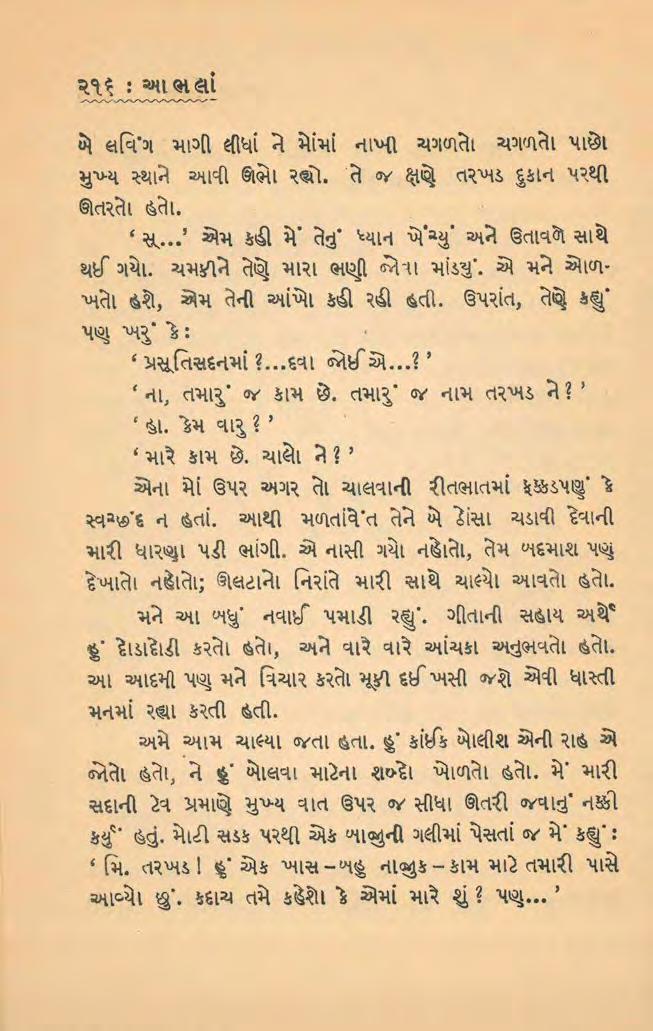 ૨૧૬ : આભલાં
બે લવિંગ માગી લીધાં ને મોંમાં નાખી ચગળતો ચગળતો પાછો
મુખ્ય સ્થાને આવી ઊભો રહ્યો. તે જ ક્ષણે તરખડ દુકાન પરથી
ઊતરતો હતો.
‘સૂ...’ એમ કહી મેં તેનું ધ્યાન ખેંચ્યું અને ઉતાવળે સાથે
થઈ ગયો. ચમકીને તેણે મારા ભણી જોવા માંડયું. એ મને ઓળ-
ખતો હશે, એમ તેની આંખો કહી રહી હતી. ઉપરાંત, તેણે કહ્યું
પણ ખરું કે :
‘પ્રસૂતિસદનમાં ?...દવા જોઈએ...?’
‘ના, તમારું જ કામ છે. તમારું જ નામ તરખડ ને ?’
‘હા. કેમ વારુ ?’
‘મારે કામ છે. ચાલો ને ?’
એના મોં ઉપર અગર તો ચાલવાની રીતભાતમાં ફક્કડપણું કે
સ્વચ્છંદ ન હતાં. આથી મળતાંવેંત તેને બે ઠોંસા ચડાવી દેવાની
મારી ધારણા પડી ભાંગી. એ નાસી ગયો નહોતો, તેમ બદમાશ પણ
દેખાતો નહોતો; ઊલટાનો નિરાંતે મારી સાથે ચાલ્યો આવતો હતો.
મને આ બધું નવાઈ પમાડી રહ્યું. ગીતાની સહાય અર્થે
હું દોડાદોડી કરતો હતો, અને વારે વારે આંચકા અનુભવતો હતો.
આ આદમી પણ મને વિચાર કરતો મૂકી દઈ ખસી જશે એવી ધાસ્તી
મનમાં રહ્યા કરતી હતી.
અમે આમ ચાલ્યા જતા હતા. હું કાંઈક બોલીશ એની રાહ એ
જોતો હતો, ને હું બોલવા માટેના શબ્દો ખોળતો હતો. મેં મારી
સદાની ટેવ પ્રમાણે મુખ્ય વાત ઉપર જ સીધા ઊતરી જવાનું નક્કી
કર્યું હતું. મોટી સડક પરથી એક બાજુની ગલીમાં પેસતાં જ મેં કહ્યું :
‘મિ. તરખડ ! હું એક ખાસ – બહુ નાજુક – કામ માટે તમારી પાસે
આવ્યો છું. કદાચ તમે કહેશો કે એમાં મારે શું ? પણ...’